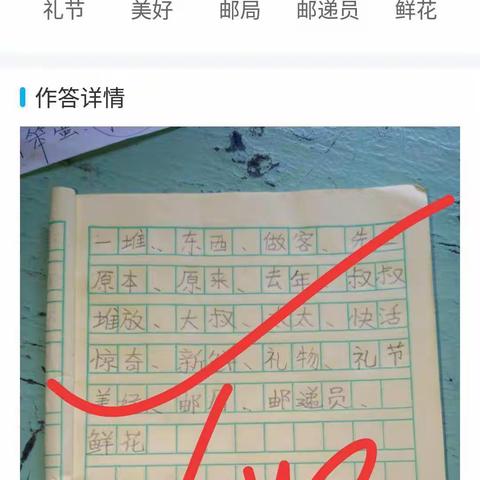 礼节 美好 邮局 邮递员 鲜花
作答详情
一堆、东西、做客、先
原本、原来、去年、叔叔
堆放、大叔、太、快活
惊奇、新、礼物、礼节
美好、邮局、邮递员、
鲜花